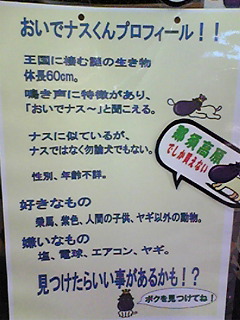 おいでナスくんプロフィール！！
王国に棲む謎の生き物
体長60cm。
鳴き声に特徴があり、
「おいでナス〜」と聞こえる。
ナスに似ているが、
ナスではなく勿論犬でもない。
性別、年齢不詳。
那須高原
でしか買えない
好きなもの
乗馬、紫色、人間の子供、ヤギ以外の動物。
嫌いなもの
塩、電球、エアコン、ヤギ。
見つけたらいい事があるかも！？
ボクを見つけてね！